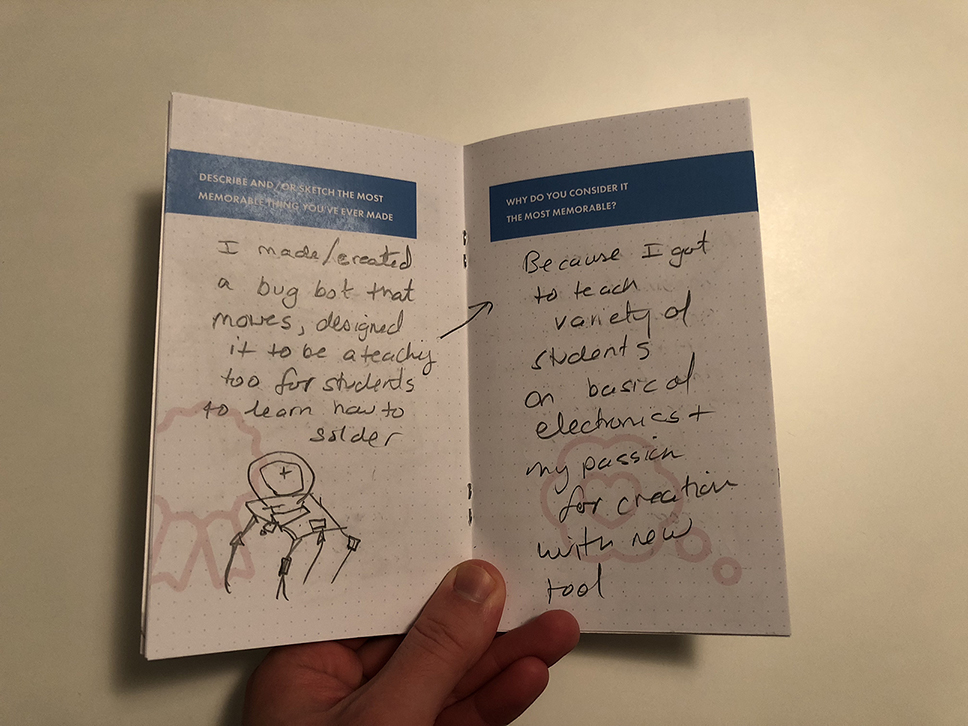 DESCRIBE AND/OR SKETCH THE MOST
MEMORABLE THING YOU'VE EVER MADE
I made/created
a bug bot that
moves, designed
it to be a teachig
too for students
to learn how to
solder
+
WHY DO YOU CONSIDER IT
THE MOST MEMORABLE?
Because I got
to teach
variety of
students
on basic of
electronics +
my passion
for creation
with new
tool